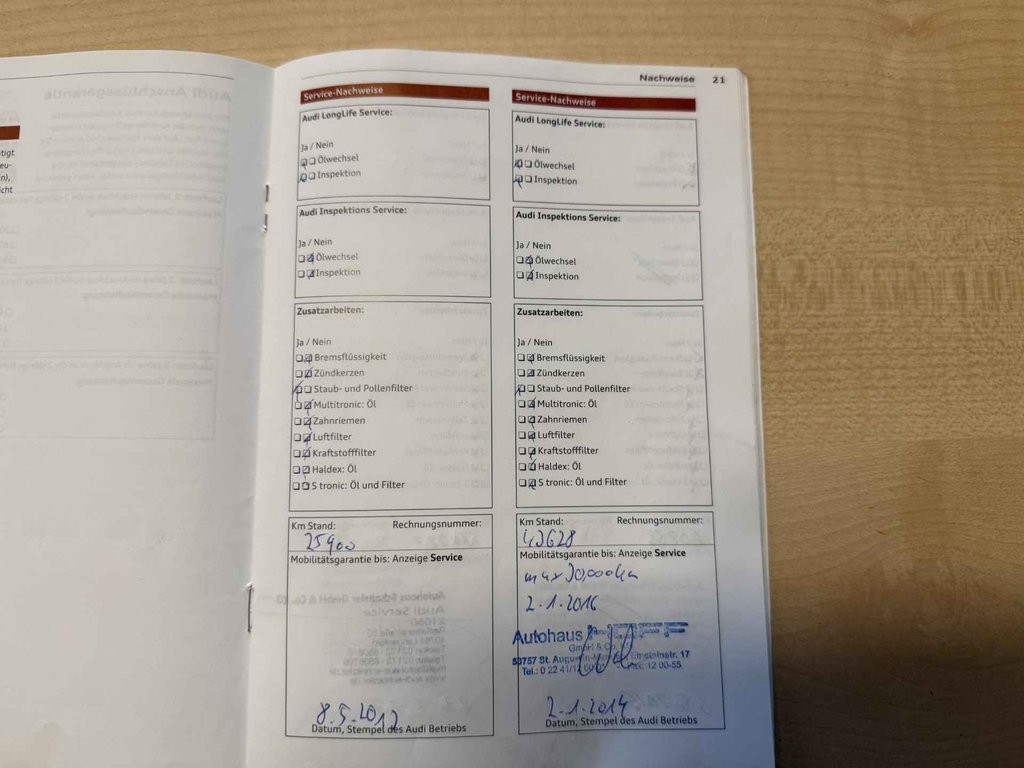 Nachweise 21
tigt
eu-
n),
icht
Audi Anschlussgarantie
Service-Nachweise
Audi LongLife Service:
Ja / Nein
Ölwechsel
Inspektion
Audi Inspektions Service:
Ja / Nein
Ölwechsel
Inspektion
Zusatzarbeiten:
Ja / Nein
Bremsflüssigkeit
Zündkerzen
Staub- und Pollenfilter
Multitronic: Öl
Zahnriemen
Luftfilter
Kraftstofffilter
Haldex: Öl
S tronic: Öl und Filter
Km Stand: Rechnungsnummer:
25900
Mobilitätsgarantie bis: Anzeige Service
8.5.2012
Datum, Stempel des Audi Betriebs
Service-Nachweise
Audi LongLife Service:
Ja / Nein
Ölwechsel
Inspektion
Audi Inspektions Service:
Ja / Nein
Ölwechsel
Inspektion
Zusatzarbeiten:
Ja / Nein
Bremsflüssigkeit
Zündkerzen
Staub- und Pollenfilter
Multitronic: Öl
Zahnriemen
Luftfilter
Kraftstofffilter
Haldex: Öl
S tronic: Öl und Filter
Km Stand: Rechnungsnummer:
Mobilitätsgarantie bis: Anzeige Service
2.1.2016
Autohaus
GmbH & Co.
53757 St. Einsteinstr. 17
Tel.: 0 22 41/ Fax: 12 00-55
2-1.2014
Datum, Stempel des Audi Betriebs